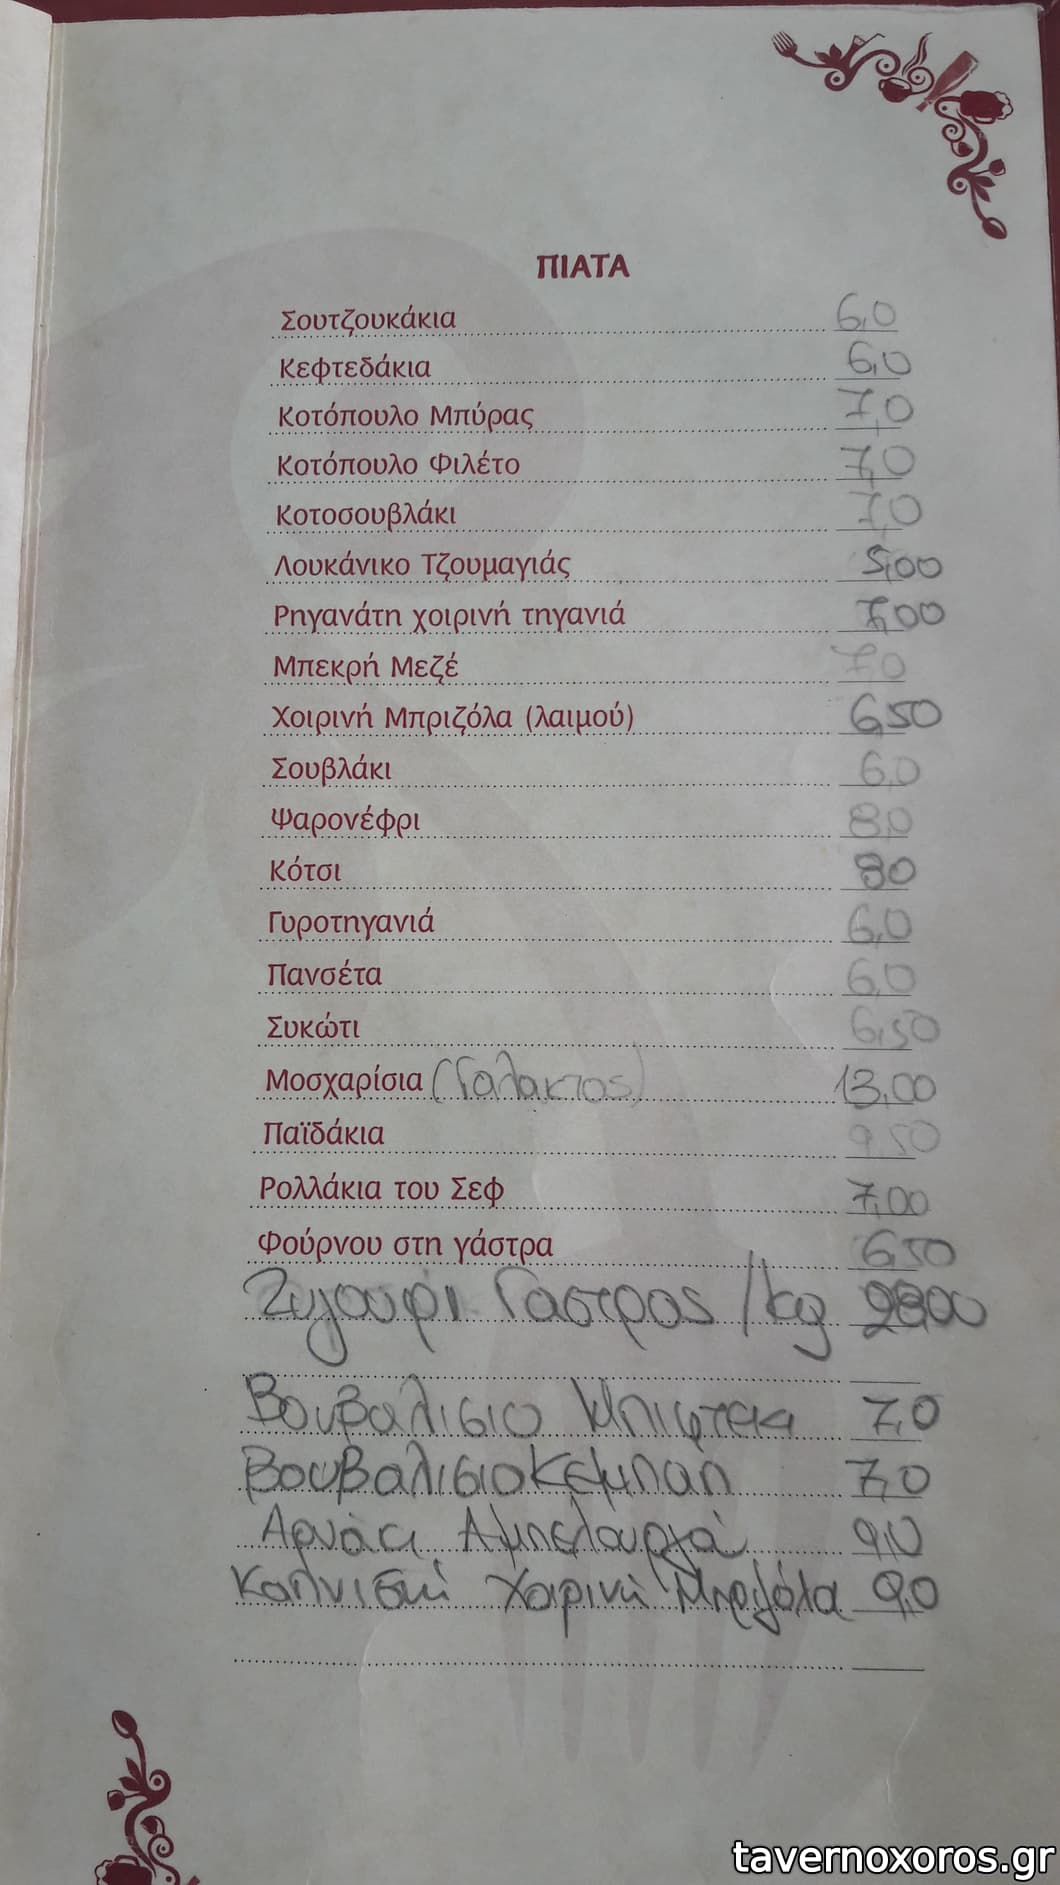 ΠΙΑΤΑ
Σουτζουκάκια 6,0
Κεφτεδάκια 6,0
Κοτόπουλο Μπύρας 7,0
Κοτόπουλο Φιλέτο 7,0
Κοτοσουβλάκι 7,0
Λουκάνικο Τζουμαγιάς 5,00
Ρηγανάτη χοιρινή τηγανιά 7,00
Μπεκρή Μεζέ 7,0
Χοιρινή Μπριζόλα (λαιμού) 6,50
Σουβλάκι 6,0
Ψαρονέφρι 8,0
Κότσι
Γυροτηγανιά 6,0
Πανσέτα 6,0
Συκώτι 6,50
Μοσχαρίσια (Γαλακτος) 13,00
Παϊδάκια 9,50
Ρολλάκια του Σεφ 7,00
Φούρνου στη γάστρα 6,50
Ζυγουρι Γαστρος /kg
Βουβαλισιο Μπιφτεκι 7,0
Βουβαλισιο Κεμπαπ 7,0
Αρνάκι Αμπελουργιά 9,0
Καπνιστή Χοιρινή Μπριζόλα 9,0
tavernoxoros.gr